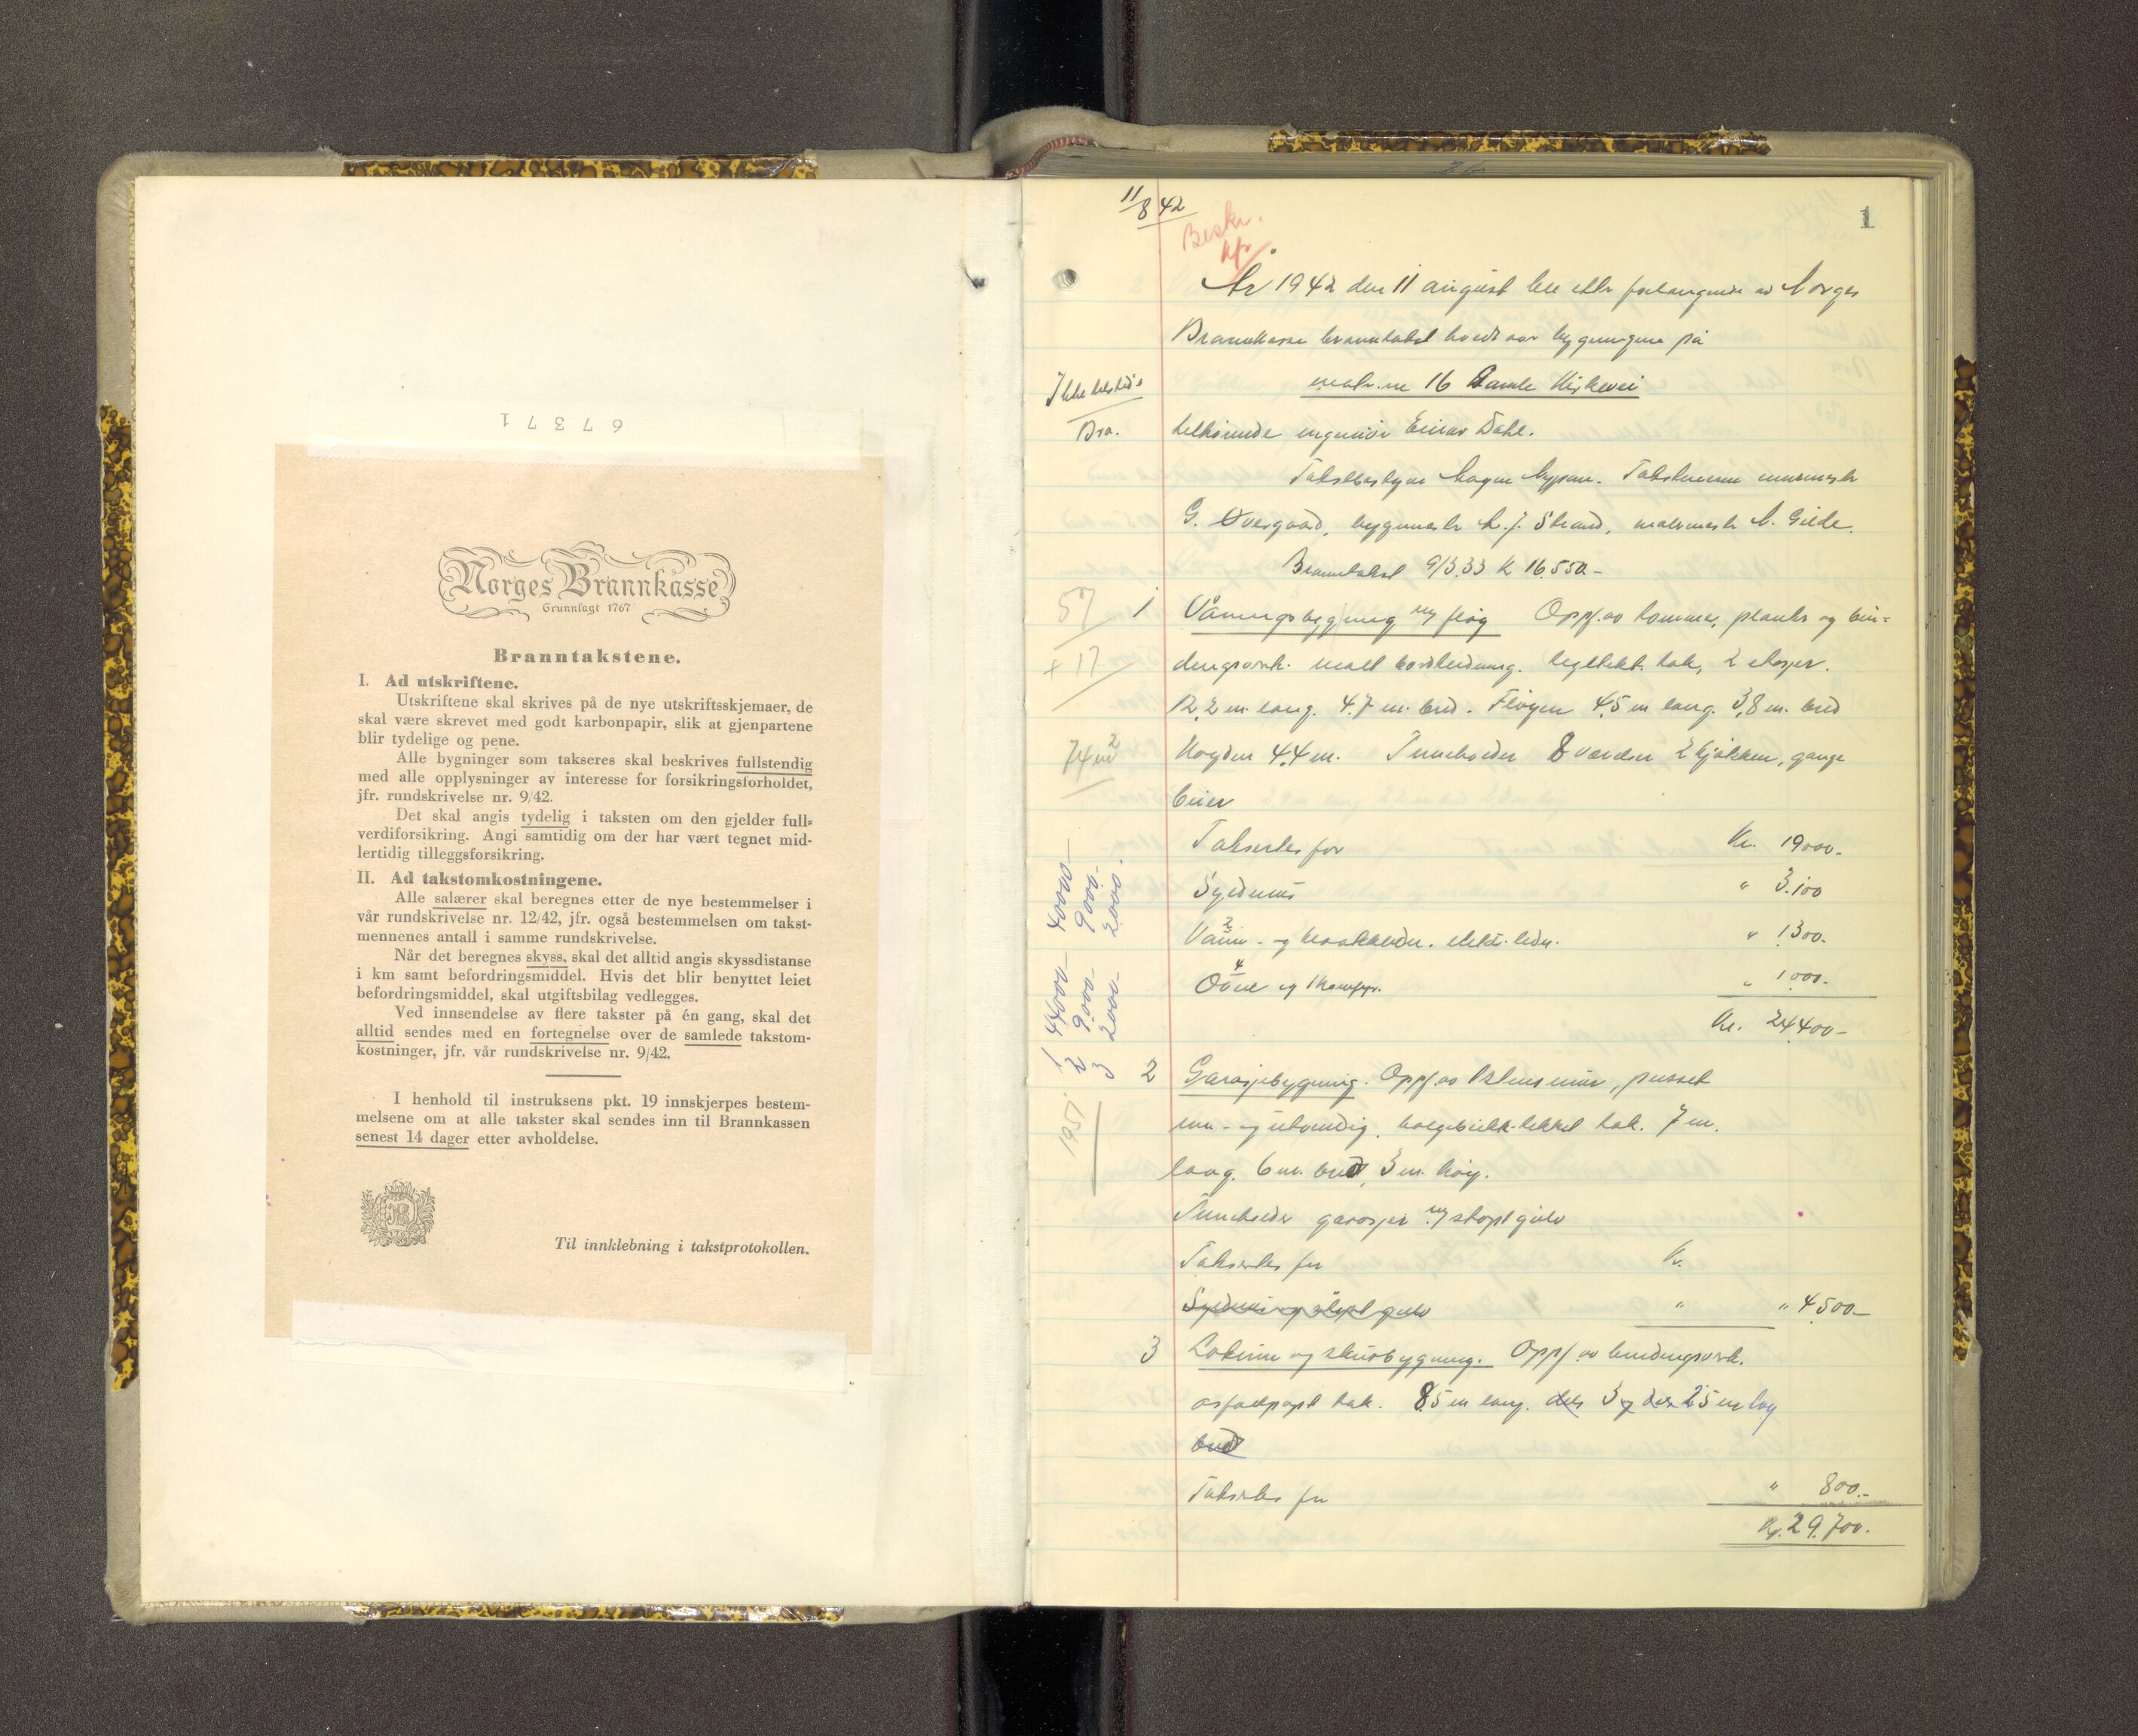 67371
Norges Brannkasse
Grunnlagt 1767
Branntakstene.
I. Ad utskriftene.
Utskriftene skal skrives på de nye utskriftsskjemaer, de
skal være skrevet med godt karbonpapir, slik at gjenpartene
blir tydelige og pene.
Alle bygninger som takseres skal beskrives fullstendig
med alle opplysninger av interesse for forsikringsforholdet,
jfr. rundskrivelse nr. 9/42.
Det skal angis tydelig i taksten om den gjelder full-
verdiforsikring. Angi samtidig om der har vært tegnet mid-
lertidig tilleggsforsikring.
II. Ad takstomkostningene.
Alle salærer skal beregnes etter de nye bestemmelser i
vår rundskrivelse nr. 12/42, jfr. også bestemmelsen om takst-
mennenes antall i samme rundskrivelse.
Når det beregnes skyss, skal det alltid angis skyssdistanse
i km samt befordringsmiddel. Hvis det blir benyttet leiet
befordringsmiddel, skal utgiftsbilag vedlegges.
Ved innsendelse av flere takster på én gang, skal det
alltid sendes med en fortegnelse over de samlede takstom-
kostninger, jfr. vår rundskrivelse nr. 9/42.
I henhold til instruksens pkt. 19 innskjerpes bestem-
melsene om at alle takster skal sendes inn til Brannkassen
senest 14 dager etter avholdelse.
Til innklebning i takstprotokollen.
1
11/8 42
Beskr.
År 1942 den 11 august ble etter forlangende av Norges
Brannkasse branntakst holdt over bygningene på
matr. nr 16 Gamle Kirkevei
Bra.
tilhørende ingeniør Einar Dahl.
Takstbestyrer Hagen Nypan. Takstmenn murmester
G. Overgaard, byggmester L. J. Strand, malermester N. Gilde.
Branntakst 9/3.33 K 16.550.-
57
1 Våningsbygning m/ fløy Oppf. av tømmer, planke og bin-
+ 17
dingsverk. malt bordkledning. tegltekt. tak, 2 etasjer.
12,2 m. lang. 4.7 m. bred. Fløyen 4,5 m lang. 3,8 m. bred
74 m2
Høyden 4,4 m. Inneholder 8 værelser 2 kjøkken, gange
beier
Takseres for Kr. 19000.-
" 3.100
Vann- og kloakkledn. elektr. ledn. " 1300.-
4 Ovne og 1 komfyr. " 1000.-
Kr. 24400-
1 44000- 40000-
2 9000- 9000-
3 2000- 2000.
1951
2 Garasjebygning. Oppf. av 1 stens mur, pusset
inn- og utvendig. bølgeblikk-tekket tak. 7 m.
lang. 6 m. bred, 3 m. høy.
Inneholder garasjer m/ støpt gulv
Takseres for Kr.
" " 4500-
3 Lokum og skurbygning. Oppf. av bindingsverk.
asfaltpapt tak. 8.5 m lang. dels 3 og dels 2.5 m høy
bred
Takseres for " 800.-
Kr. 29.700.